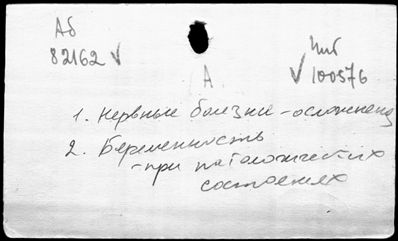 Аб
82162 ✓
Шиб
✓ 100576
А
1. Нервные болезни - осложнен
2. Беременность
- при патологических
состояниях